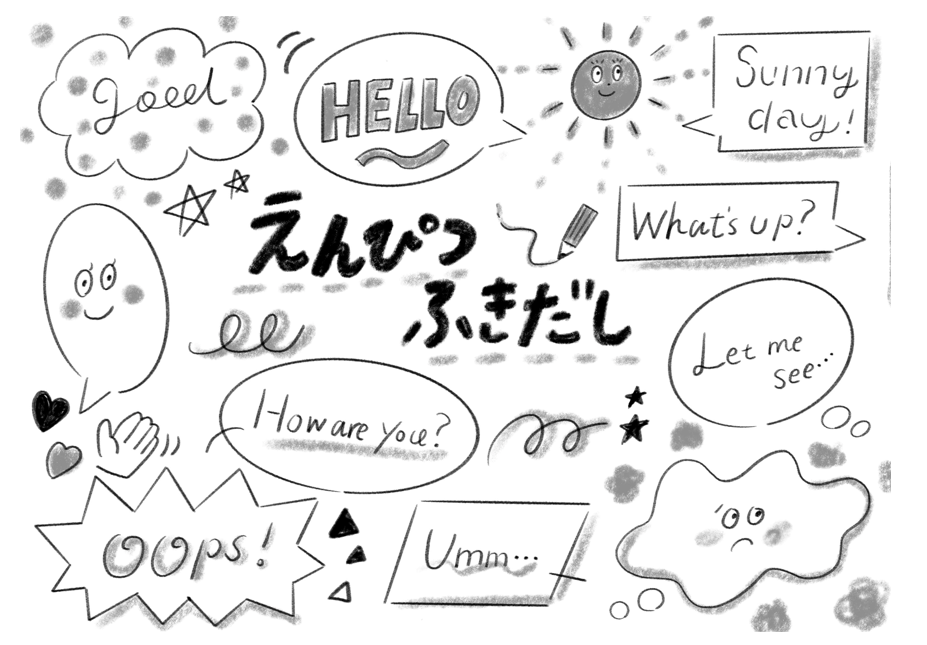 good
HELLO
Sunny
day!
えんぴつ
ふきだし
What's up?
Let me
see...
How are you?
Oops!
Umm...